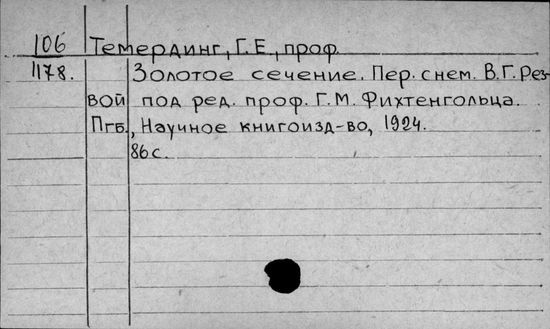 106 Темердинг, Г. Е., проф.
1178. Золотое сечение. Пер. с нем. В. Г. Рез-
вой под ред. проф. Г. М. Фихтенгольца.
Пгб., Научное книгоизд-во, 1924.
86 с.